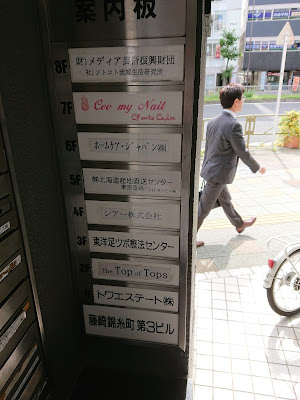 案内板
8F 財)メディア教育振興財団
社)ソトコト流域生活研究所
7F Cee my Nail
6F ホームケア・ジャパン㈱
5F ㈱北海道産地直送センター
4F シアー株式会社
3F 東洋足ツボ療法センター
2F The Top of Tops
トワエステート㈱
藤崎錦糸町第3ビル